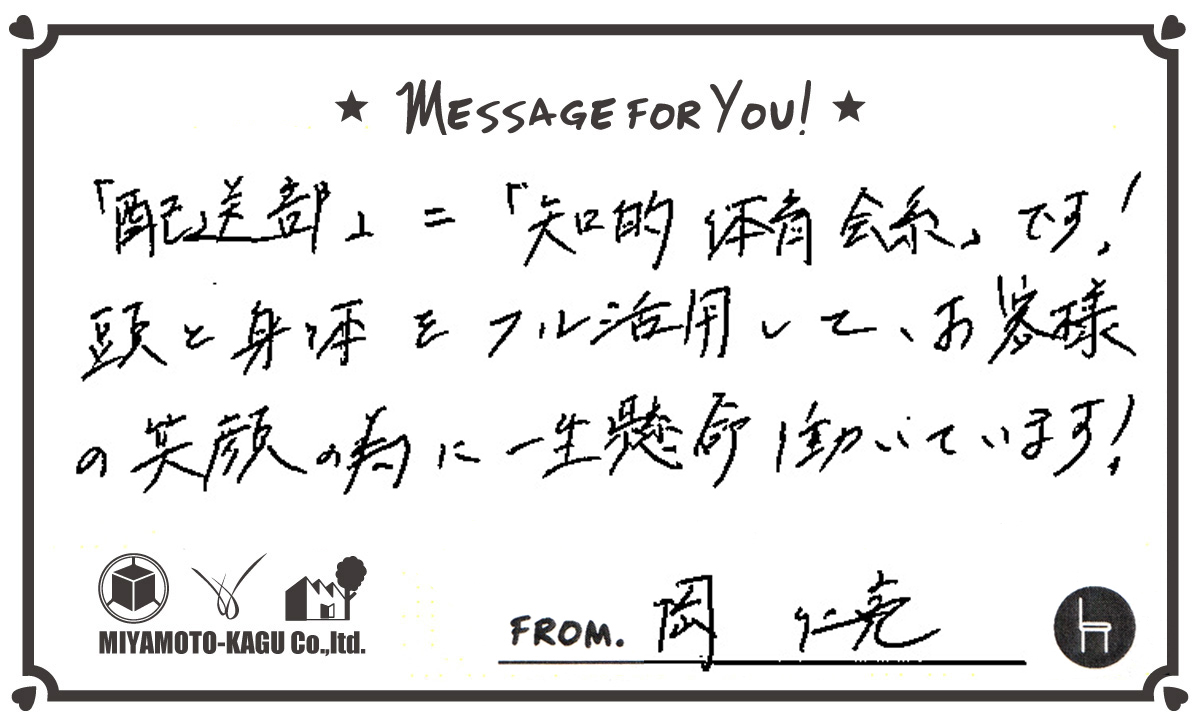 ★ MESSAGE FOR YOU! ★
「配送部」=「知的体育会系」です!
頭と身体をフル活用して、お客様
の笑顔の為に一生懸命働いています!
MIYAMOTO-KAGU Co.,ltd.
FROM. 岡 仁亮